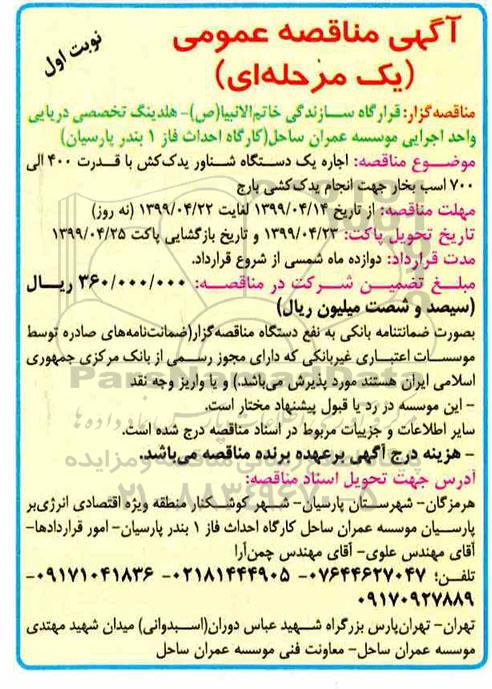 آگهی مناقصه عمومی
(یک مرحله‌ای)
نوبت اول
مناقصه‌گزار: قرارگاه سازندگی خاتم‌الانبیا(ص)- هلدینگ تخصصی دریایی
واحد اجرایی موسسه عمران ساحل(کارگاه احداث فاز ۱ بندر پارسیان)
موضوع مناقصه: اجاره یک دستگاه شناور یدک‌کش با قدرت ۴۰۰ الی
۷۰۰ اسب بخار جهت انجام یدک‌کشی بارج
مهلت مناقصه: از تاریخ ۱۳۹۹/۰۴/۱۴ لغایت ۱۳۹۹/۰۴/۲۲ (نه روز)
تاریخ تحویل پاکت: ۱۳۹۹/۰۴/۲۳ و تاریخ بازگشایی پاکت ۱۳۹۹/۰۴/۲۵
مدت قرارداد: دوازده ماه شمسی از شروع قرارداد.
مبلغ تضمین شرکت در مناقصه: ۳۶۰/۰۰۰/۰۰۰ ریال
(سیصد و شصت میلیون ریال)
بصورت ضمانتنامه بانکی به نفع دستگاه مناقصه‌گزار(ضمانت‌نامه‌های صادره توسط
موسسات اعتباری غیربانکی که دارای مجوز رسمی از بانک مرکزی جمهوری
اسلامی ایران هستند مورد پذیرش می‌باشد.) و یا واریز وجه نقد
- این موسسه در رد یا قبول پیشنهاد مختار است.
سایر اطلاعات و جزییات مربوط در اسناد مناقصه درج شده است.
- هزینه درج آگهی برعهده برنده مناقصه می‌باشد.
آدرس جهت تحویل اسناد مناقصه:
هرمزگان- شهرستان پارسیان- شهر کوشکنار منطقه ویژه اقتصادی انرژی‌بر
پارسیان موسسه عمران ساحل کارگاه احداث فاز ۱ بندر پارسیان- امور قراردادها-
آقای مهندس علوی- آقای مهندس چمن‌آرا
تلفن: ۰۷۶۴۴۶۲۷۰۴۷- ۰۲۱۸۱۴۴۴۹۰۵- ۰۹۱۷۱۰۴۱۸۳۶-
۰۹۱۷۰۹۲۷۸۸۹
تهران- تهران‌پارس بزرگراه شهید عباس دوران(اسبدوانی) میدان شهید مهتدی
موسسه عمران ساحل- معاونت فنی موسسه عمران ساحل
ParsNamadData
۰۲۱-۸۸۳۴۹۶۷۰-۵